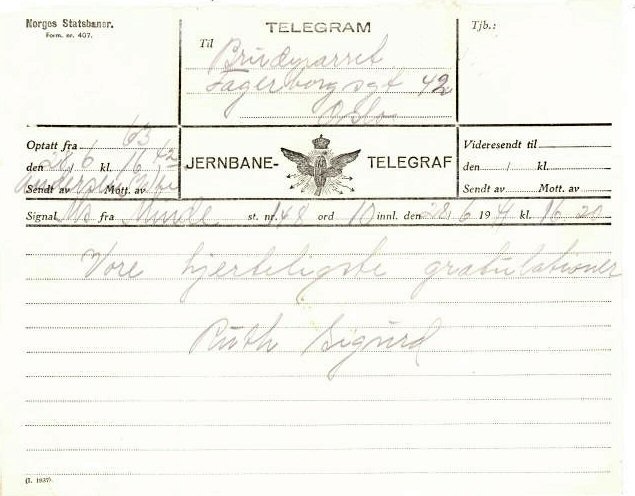 Norges Statsbaner.
Form. nr. 407.
TELEGRAM
Tjb.:
Til Brudeparret
Fagerborgsgt 42
Oslo
Optatt fra 63
den 28/6 kl. 16 42
Sendt av Mott. av
JERNBANE- TELEGRAF
Videresendt til
den / kl.
Sendt av Mott. av
Signal Ms fra Minde st. nr. 148 ord 10 innl. den 28/6 19 41 kl. 16 20
Vore hjerteligste gratulationer
Ruth Sigurd
(I. 1937)